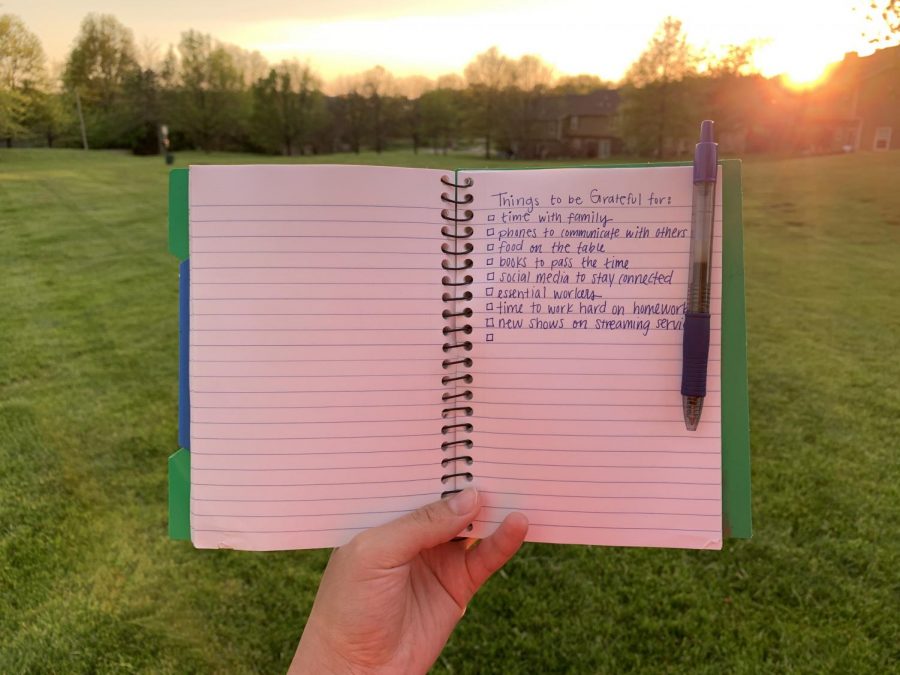 Things to be Grateful for:
□ time with family
□ phones to communicate with others
□ food on the table
□ books to pass the time
□ social media to stay connected
□ essential workers
□ time to work hard on homework
□ new shows on streaming servi
□